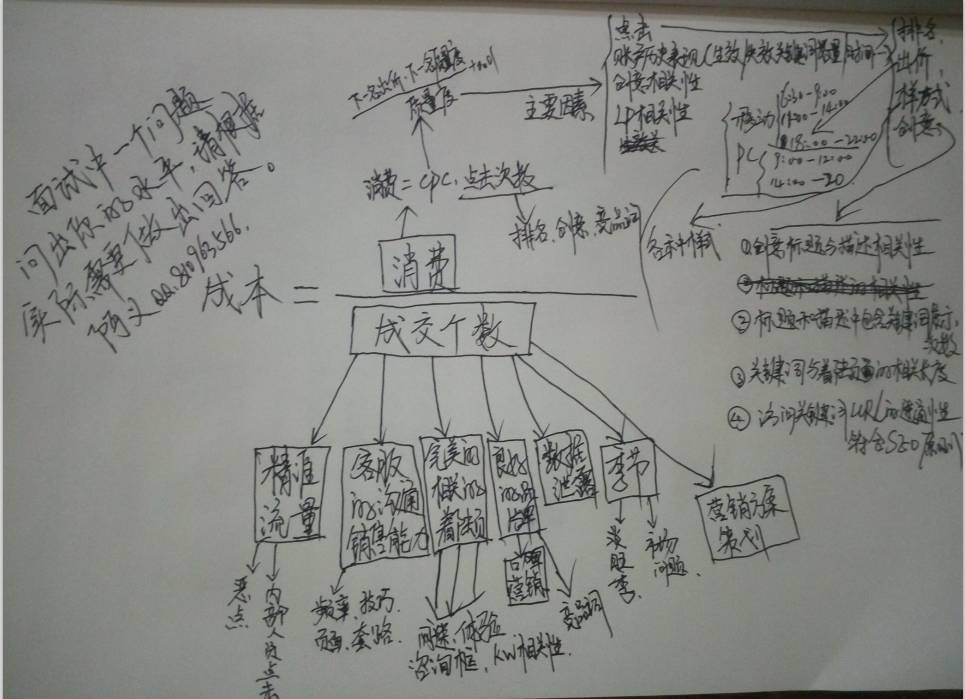 面试中一个问题
问出你的水平，请根据
实际需要做出回答。
阿文QQ:81096566.
下一名出价·下一名质量度
质量度
+0.01
主要因素
点击
账户历史表现(生效/失效关键词数量/时间
创意相关性
LP相关性
排名,
出价,
样式
创意
移动
6:30-9:00
12:00-14:00
18:00-22:00
PC
9:00-12:00
14:00-20
消费=CPC·点击次数
排名,创意,竞品词
各种样式
成本=
消费
成交个数
①创意标题与描述相关性
②标题和描述中包含关键词展示
次数
③关键词与着陆页面的相关度
④访问关键词URL的速通性
符合SEO原则
精准
流量
客服
的沟通
销售能力
完美的
相关的
着陆页
良好
的品
牌
数据
泄露
季节
营销方案
策划
恶点
内部人员点击
频率,技巧,
页面,套路.
网速,体验
咨询框,KW相关性.
口碑
营销
竞品词
淡旺季.
市场
问题.